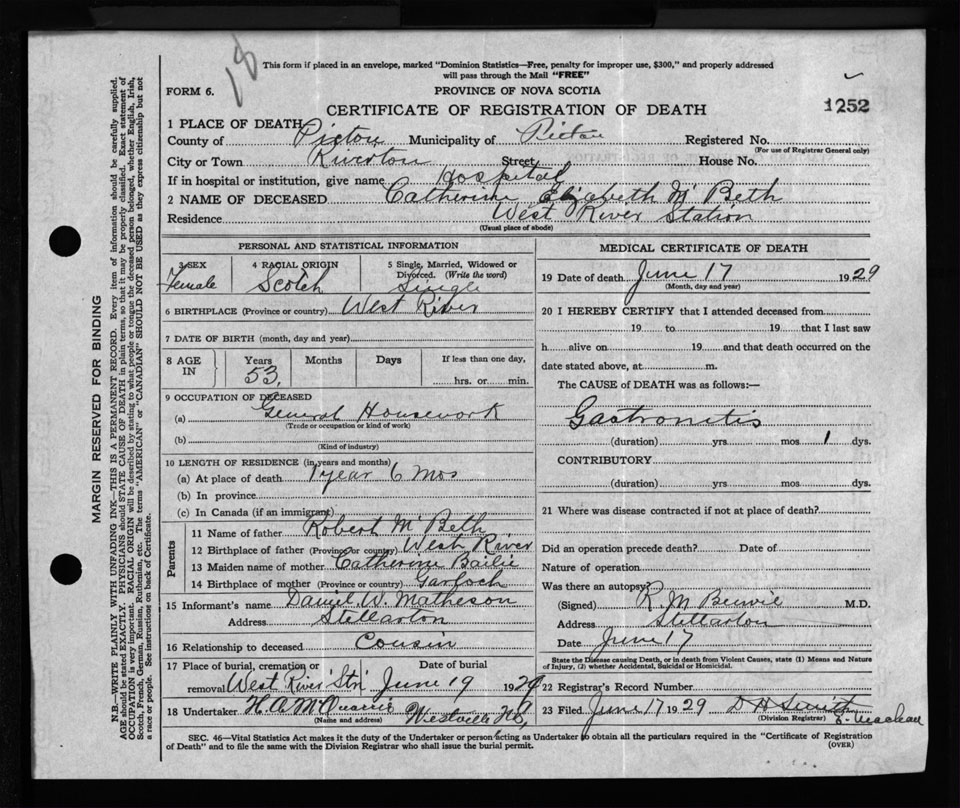 18
This form if placed in an envelope, marked "Dominion Statistics—Free, penalty for improper use, $300," and properly addressed
will pass through the Mail "FREE"
FORM 6. PROVINCE OF NOVA SCOTIA
CERTIFICATE OF REGISTRATION OF DEATH 1252
1 PLACE OF DEATH
County of Pictou Municipality of Pictou Registered No.
(For use of Registrar General only)
City or Town Riverton Street House No.
If in hospital or institution, give name Hospital
2 NAME OF DECEASED Catherine Elizabeth McBeth
Residence West River Station
(Usual place of abode)
PERSONAL AND STATISTICAL INFORMATION
3 SEX 4 RACIAL ORIGIN 5 Single, Married, Widowed or
Divorced. (Write the word)
Female Scotch Single
6 BIRTHPLACE (Province or country) West River
7 DATE OF BIRTH (month, day and year)
8 AGE IN Years Months Days If less than one day,
53, hrs. or min.
9 OCCUPATION OF DECEASED
(a) General Housework
(Trade or occupation or kind of work)
(b)
(Kind of industry)
10 LENGTH OF RESIDENCE (in years and months)
(a) At place of death 1 year 6 mos
(b) In province
(c) In Canada (if an immigrant)
Parents
11 Name of father Robert McBeth
12 Birthplace of father (Province or country) West River
13 Maiden name of mother Catherine Bailie
14 Birthplace of mother (Province or country) Garloch
15 Informant's name Daniel W. Matheson
Address Stellarton
16 Relationship to deceased Cousin
17 Place of burial, cremation or Date of burial
removal West River Stn June 19 1929
18 Undertaker H. A McQuarrie Westville NS
(Name and address)
MEDICAL CERTIFICATE OF DEATH
19 Date of death June 17 1929
(Month, day and year)
20 I HEREBY CERTIFY that I attended deceased from
19 to 19 that I last saw
h alive on 19 and that death occurred on the
date stated above, at m.
The CAUSE of DEATH was as follows:—
Gastronitis
(duration) yrs mos 1 dys.
CONTRIBUTORY
(duration) yrs mos dys.
21 Where was disease contracted if not at place of death?
Did an operation precede death? Date of
Nature of operation
Was there an autopsy?
(Signed) R. M Benvie M.D.
Address Stellarton
Date June 17
State the Disease causing Death, or in death from Violent Causes, state (1) Means and Nature
of Injury, (2) whether Accidental, Suicidal or Homicidal.
22 Registrar's Record Number
23 Filed June 17 1929 D H Smith
(Division Registrar)
SEC. 46—Vital Statistics Act makes it the duty of the Undertaker or person acting as Undertaker to obtain all the particulars required in the "Certificate of Registration
of Death" and to file the same with the Division Registrar who shall issue the burial permit.
(OVER)
MARGIN RESERVED FOR BINDING
N.B.—WRITE PLAINLY WITH UNFADING INK—THIS IS A PERMANENT RECORD. Every item of information should be carefully supplied.
AGE should be stated EXACTLY. PHYSICIANS should STATE CAUSE OF DEATH in plain terms, so that it may be properly classified. Exact statement of
OCCUPATION is very important. RACIAL ORIGIN will be described by stating to what people or tongue the deceased person belonged, whether English, Irish,
Scotch, French, German, Russian, Ruthenian, etc. The terms "AMERICAN" or "CANADIAN" SHOULD NOT BE USED as they express citizenship but not
a race or people. See instructions on back of Certificate.